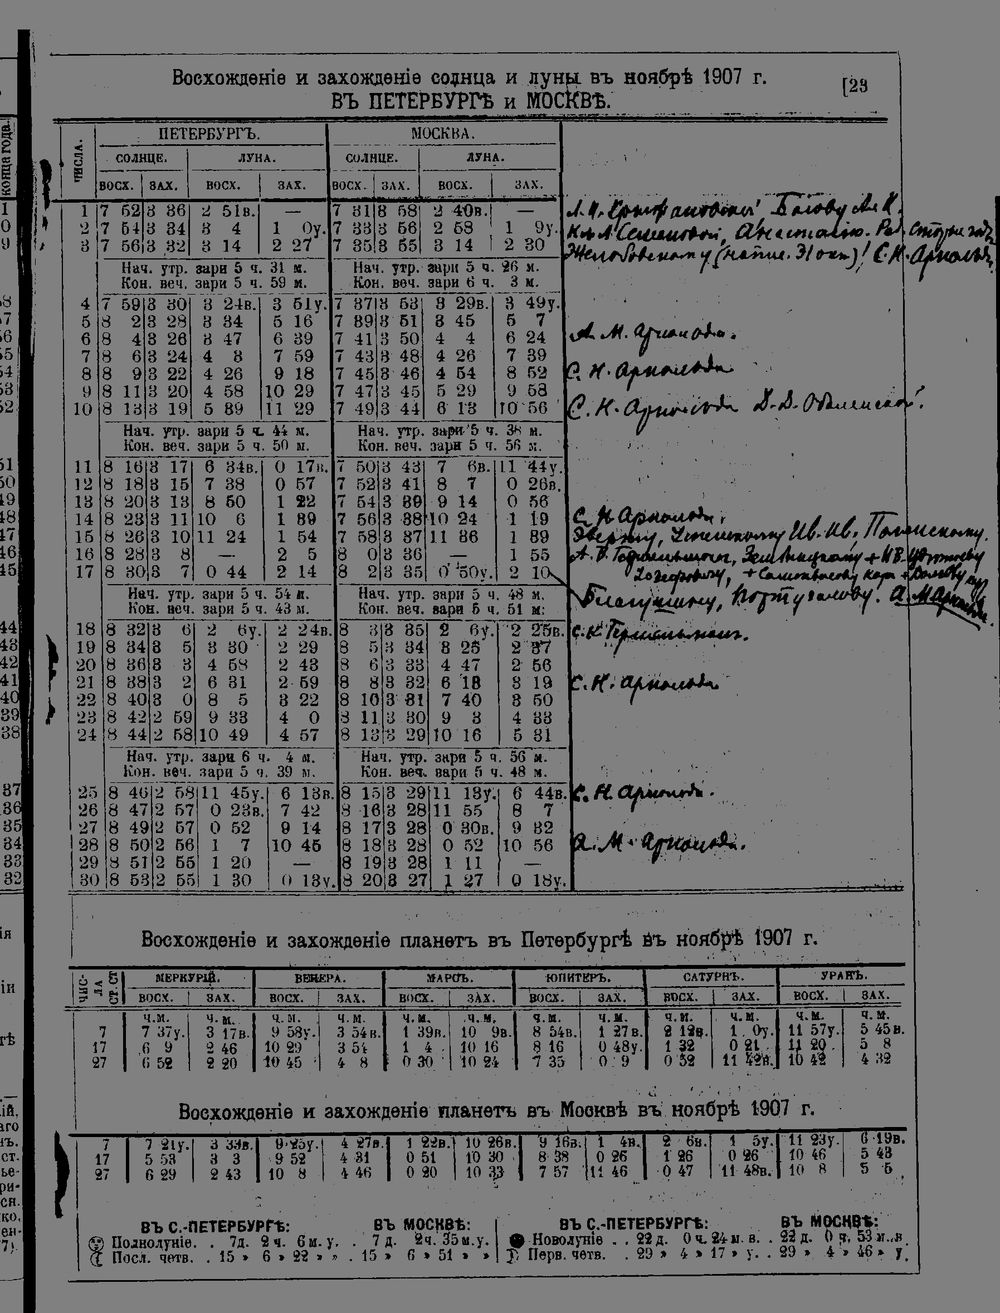 [23
Восхожденіе и захожденіе солнца и луны въ ноябрѣ 1907 г.
ВЪ ПЕТЕРБУРГѢ и МОСКВѢ.
ЧИСЛА. ПЕТЕРБУРГЪ. МОСКВА.
СОЛНЦЕ. ЛУНА. СОЛНЦЕ. ЛУНА.
ВОСХ. ЗАХ. ВОСХ. ЗАХ. ВОСХ. ЗАХ. ВОСХ. ЗАХ.
1 7 52 3 36 2 51в. — 7 31 3 58 2 40в. —
2 7 54 3 34 3 4 1 0у. 7 33 3 56 2 58 1 9у.
3 7 56 3 32 3 14 2 27 7 35 3 55 3 14 2 30 С. Н. Арнольди
Нач. утр. зари 5 ч. 31 м. Нач. утр. зари 5 ч. 26 м.
Кон. веч. зари 5 ч. 59 м. Кон. веч. зари 6 ч. 3 м.
4 7 59 3 30 3 24в. 3 51у. 7 37 3 53 3 29в. 3 49у.
5 8 2 3 28 3 34 5 16 7 39 3 51 3 45 5 7
6 8 4 3 26 3 47 6 39 7 41 3 50 4 4 6 24 А. М. Арнольди.
7 8 6 3 24 4 3 7 59 7 43 3 48 4 26 7 39
8 8 9 3 22 4 26 9 18 7 45 3 46 4 54 8 52 С. Н. Арнольди
9 8 11 3 20 4 58 10 29 7 47 3 45 5 29 9 58
10 8 13 3 19 5 39 11 29 7 49 3 44 6 13 10 56 С. Н. Арнольди Д. Д. Оболенской.
Нач. утр. зари 5 ч. 44 м. Нач. утр. зари 5 ч. 38 м.
Кон. веч. зари 5 ч. 50 м. Кон. веч. зари 5 ч. 56 м.
11 8 16 3 17 6 34в. 0 17в. 7 50 3 43 7 6в. 11 44у.
12 8 18 3 15 7 38 0 57 7 52 3 41 8 7 0 26в.
13 8 20 3 13 8 50 1 22 7 54 3 39 9 14 0 56
14 8 23 3 11 10 6 1 39 7 56 3 38 10 24 1 19 С. Н. Арнольди.
15 8 26 3 10 11 24 1 54 7 58 3 37 11 36 1 39 Ив. Ив.
16 8 28 3 8 — 2 5 8 0 3 36 — 1 55
17 8 30 3 7 0 44 2 14 8 2 3 35 0 50у. 2 10
Нач. утр. зари 5 ч. 54 м. Нач. утр. зари 5 ч. 48 м. Португалову. А. М. Арнольди
Кон. веч. зари 5 ч. 43 м. Кон. веч. зари 5 ч. 51 м:
18 8 32 3 6 2 6у. 2 24в. 8 3 3 35 2 6у. 2 25в.
19 8 34 3 5 3 30 2 29 8 5 3 34 3 25 2 37
20 8 36 3 3 4 58 2 43 8 6 3 33 4 47 2 56
21 8 38 3 2 6 31 2 59 8 8 3 32 6 13 3 19 С. Н. Арнольди
22 8 40 3 0 8 5 3 22 8 10 3 31 7 40 3 50
23 8 42 2 59 9 33 4 0 8 11 3 30 9 3 4 33
24 8 44 2 58 10 49 4 57 8 13 3 29 10 16 5 31
Нач. утр. зари 6 ч. 4 м. Нач. утр. зари 5 ч. 56 м.
Кон. веч. зари 5 ч. 39 м. Кон. веч. зари 5 ч. 48 м.
25 8 46 2 58 11 45у. 6 13в. 8 15 3 29 11 13у. 6 44в. С. Н. Арнольди.
26 8 47 2 57 0 23в. 7 42 8 16 3 28 11 55 8 7
27 8 49 2 57 0 52 9 14 8 17 3 28 0 30в. 9 32
28 8 50 2 56 1 7 10 45 8 18 3 28 0 52 10 56 А. М. Арнольди.
29 8 51 2 55 1 20 — 8 19 3 28 1 11 —
30 8 53 2 55 1 30 0 13у. 8 20 3 27 1 27 0 18у.
Восхожденіе и захожденіе планетъ въ Петербургѣ въ ноябрѣ 1907 г.
ЧИС- ЛА СТ. СТ МЕРКУРІЙ. ВЕНЕРА. МАРСЪ. ЮПИТЕРЪ. САТУРНЪ. УРАНЪ.
ВОСХ. ЗАХ. ВОСХ. ЗАХ. ВОСХ. ЗАХ. ВОСХ. ЗАХ. ВОСХ. ЗАХ. ВОСХ. ЗАХ.
ч. м. ч. м. ч. м. ч. м. ч. м. ч. м. ч. м. ч. м. ч. м. ч. м. ч. м. ч. м.
7 7 37у. 3 17в. 9 58у. 3 54в. 1 39в. 10 9в. 8 54в. 1 27в. 2 12в. 1 0у. 11 57у. 5 45в.
17 6 9 2 46 10 29 3 54 1 4 10 16 8 16 0 48у. 1 32 0 21 11 20 5 8
27 6 52 2 20 10 45 4 8 0 30 10 24 7 35 0 9 0 52 11 42в. 10 42 4 32
Восхожденіе и захожденіе планетъ въ Москвѣ въ ноябрѣ 1907 г.
7 7 21у. 3 33в. 9 25у. 4 27в. 1 22в. 10 26в. 9 16в. 1 4в. 2 6в. 1 5у. 11 23у. 6 19в.
17 5 53 3 3 9 52 4 31 0 51 10 30 8 38 0 26 1 26 0 26 10 46 5 43
27 6 29 2 43 10 8 4 46 0 20 10 33 7 57 11 46 0 47 11 48в. 10 8 5 5
ВЪ С.-ПЕТЕРБУРГѢ: ВЪ МОСКВѢ: ВЪ С.-ПЕТЕРБУРГѢ: ВЪ МОСКВѢ:
Полнолуніе. . 7д. 2ч. 6м. у. . 7 д. 2ч. 35м. у. Новолуніе . . 22д. 0ч. 24м. в. . 22д. 0 ч. 53 м. в
Посл. четв. . 15 » 6 » 22 » » . 15 » 6 » 51 » » Перв. четв. . 29 » 4 » 17 » у. . 29 » 4 » 46 » у